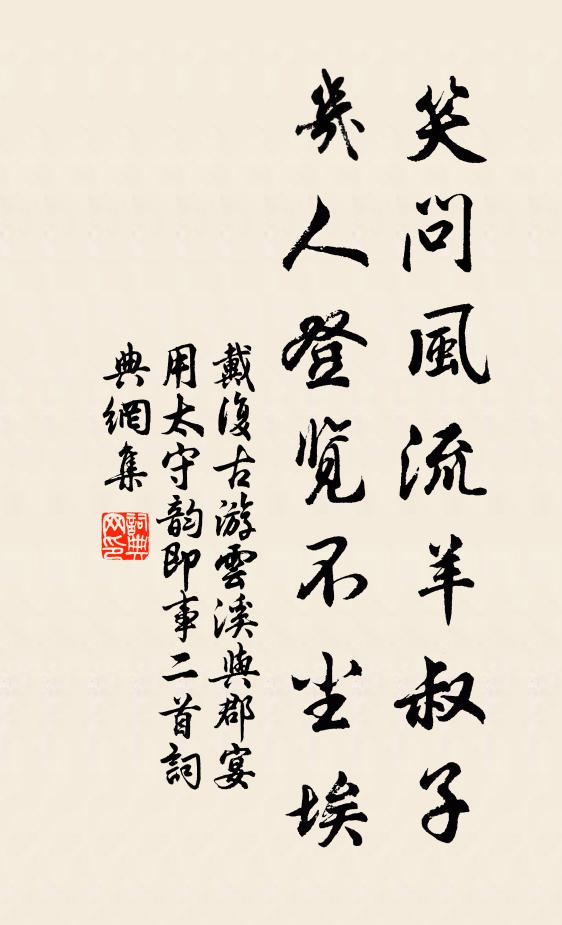 笑问風流羊叔子
幾人登览不尘埃
戴復古游雲溪與郡宴
用太守韵即事二首詞
典網集
詞典网印